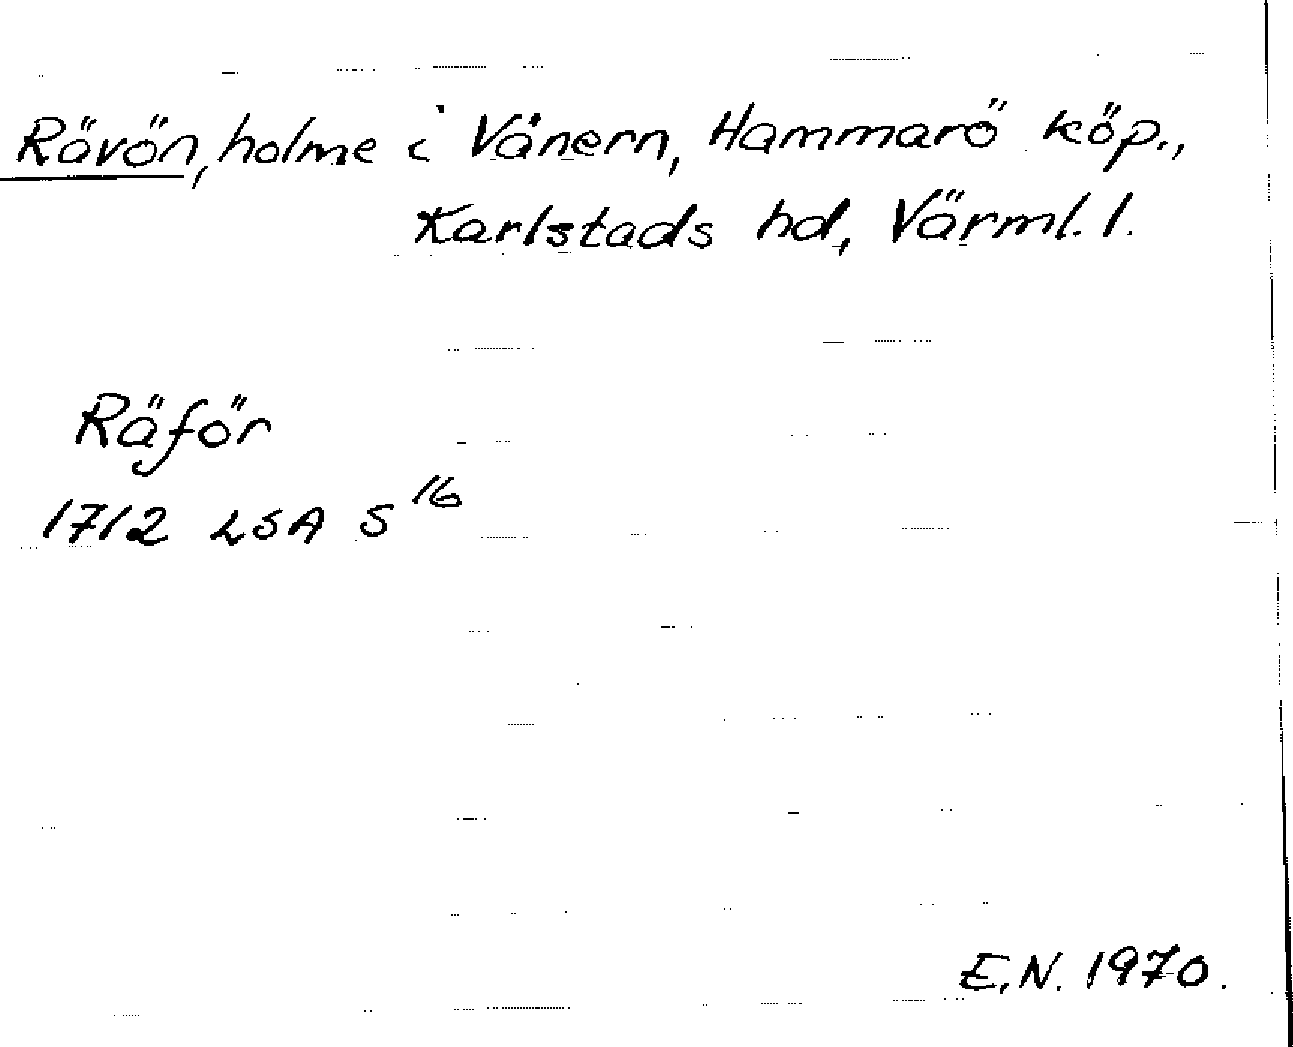 Rävön, holme i Vänern, Hammarö köp.,
Karlstads hd, Värml. l.
Räför
1712 LSA S 16
E.N. 1970.